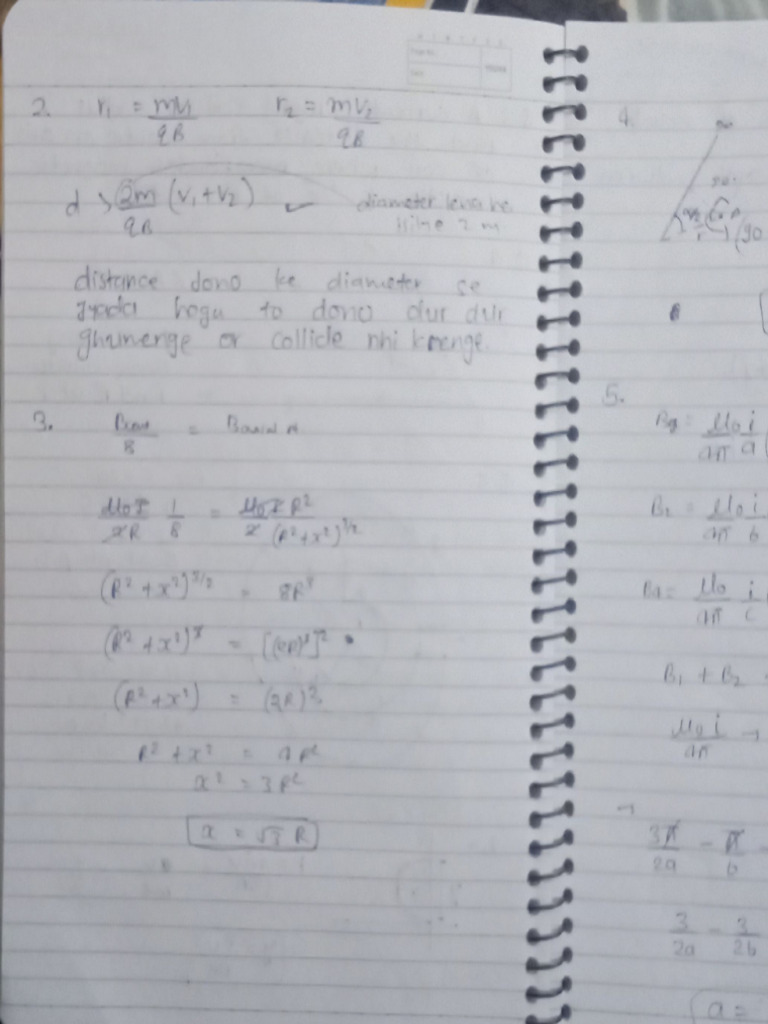 2. r₁ = mv₁/qB r₂ = mv₂/qB
d > 2m/qB (v₁+v₂) ✓ diameter lena he
2m
distance dono ke diameter se
jyada hogu to dono dur dur
ghumenge or collide nhi krenge.
3. /8 =
μ₀I/2R 1/8 = μ₀IR²/2(R²+x²)^3/2
(R²+x²)^3/2 = 8R³
(R²+x²)³ = [(2R)³]²
(R²+x²) = (2R)²
R²+x² = 4R²
x² = 3R²
x = √3 R
4.
(90
5.
= μ₀/4π i/a
B₂ = μ₀/4π i/b
= μ₀/4π i/c
B₁ + B₂
μ₀ i/4π →
3π/2a - π/b -
3/2a - 3/2b
a =